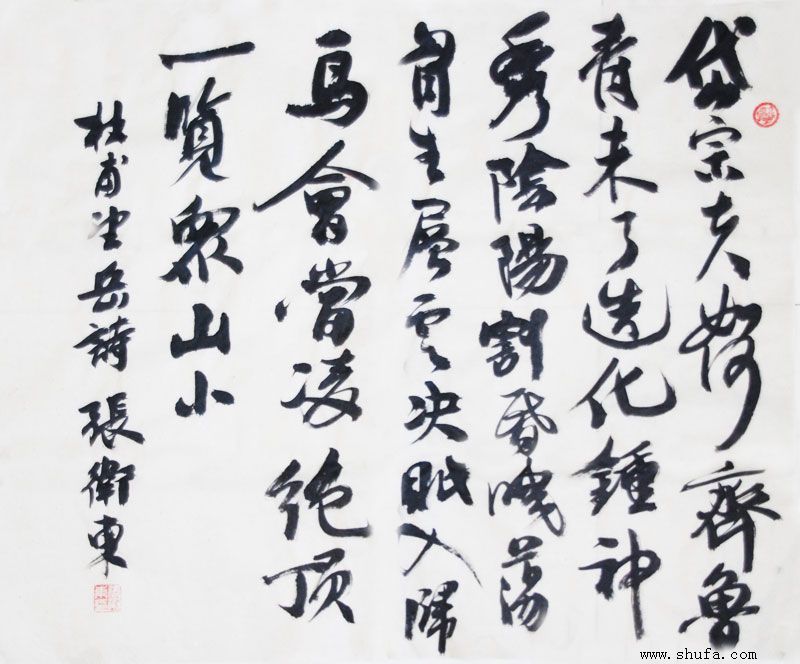 岱宗夫如何齊魯
青未了造化鍾神
秀陰陽割昏曉蕩
胷生層雲决眦入歸
鳥會當凌絶頂
一覽衆山小
杜甫望岳詩 張衛東
www.shufa.com